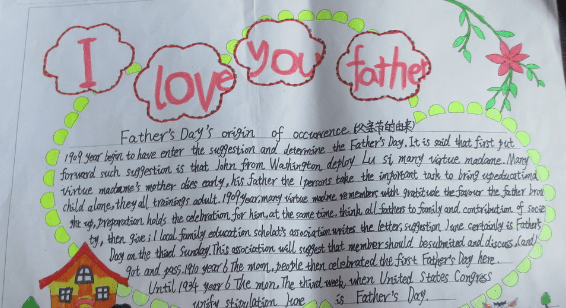 I love you father
Father's Day's origin of occurence (父亲节的由来)
1909 year begin to have enter the suggestion and determine the Father's Day. It is said that first put
forward such suggestion is that John from Washington deploy Lu si many virtue madame. Many
virtue madame's mother dies early, his father the 1 persons take the important task to bring up educationd
child alone, they all trainings adult. 1909 year, many virtue madme remembers with gratitude the favour the father brou
ght up, preparation holds the celebration for him, at the same time, think all fathers to family and contribution of socie
ty, then give; 1 local family education scholat's association writes the letter, suggestion June certainly is Father's
Day on the third Sunday. This association will suggest that member should be submited and discuss, (and)
got and pass, 1910 year 6 The mom, people then celebrated the first Father's Day here
Until 1934 year 6 The mon, The third week, when United States Congress
stipulation June is Father's Day